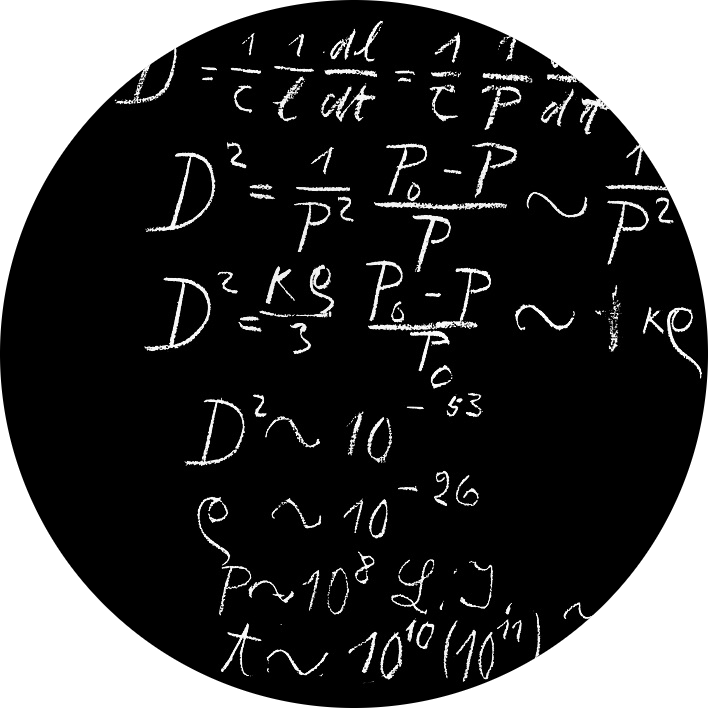 D = 1/c 1/l dl/dt = 1/c 1/P d/dt
D² = 1/P² (P₀-P)/P ~ 1/P²
D² = κρ/3 (P₀-P)/P₀ ~ 1 κρ
D² ~ 10⁻⁵³
ρ ~ 10⁻²⁶
P ~ 10⁸ L.J.
t ~ 10¹⁰(10¹¹) ~